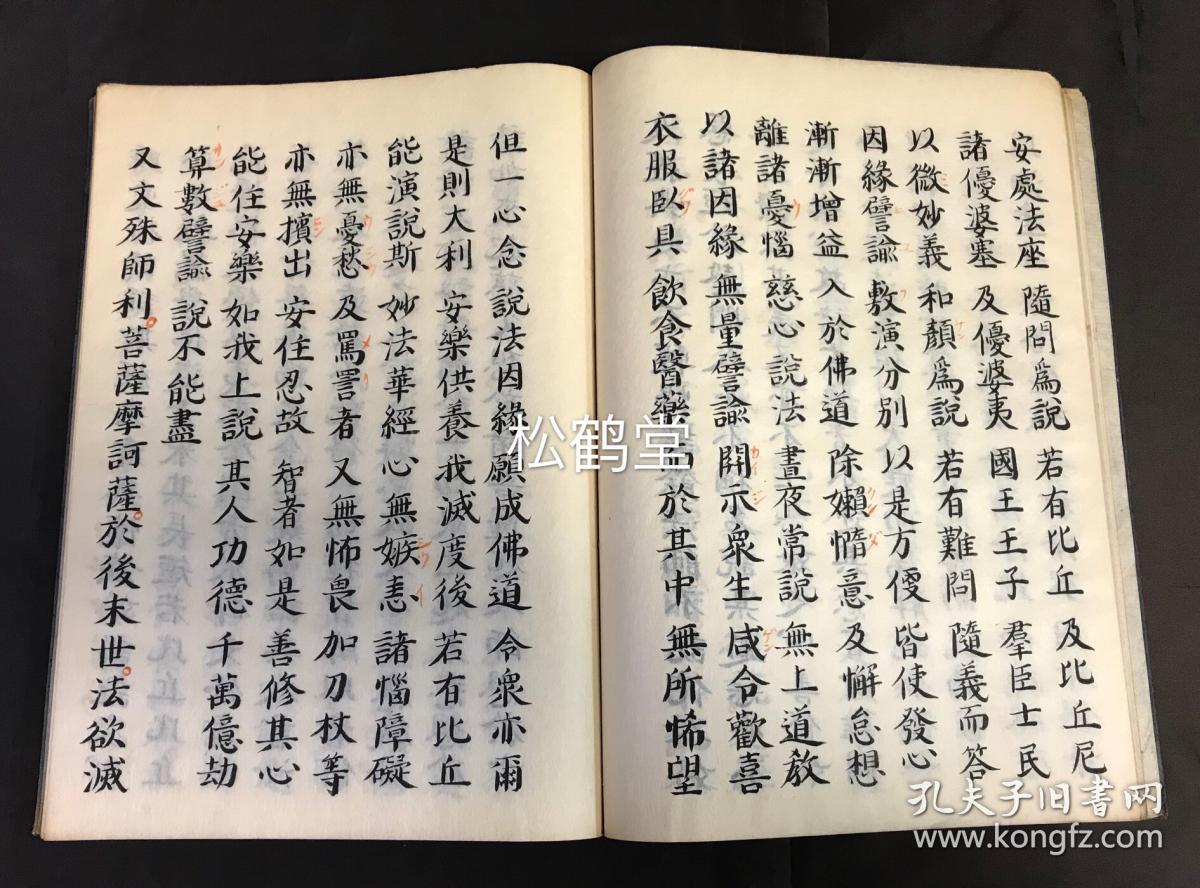 安處法座 隨問爲說 若有比丘 及比丘尼
諸優婆塞 及優婆夷 國王王子 羣臣士民
以微妙義 和顏爲說 若有難問 隨義而答
因緣譬諭 敷演分別 以是方便 皆使發心
漸漸增益 入於佛道 除嬾惰意 及懈怠想
離諸憂惱 慈心說法 晝夜常說 無上道教
以諸因緣 無量譬諭 開示衆生 咸令歡喜
衣服臥具 飲食醫藥 而於其中 無所悕望
但一心念 說法因緣 願成佛道 令衆亦爾
是則大利 安樂供養 我滅度後 若有比丘
能演說斯 妙法華經 心無嫉恚 諸惱障礙
亦無憂愁 及罵詈者 又無怖畏 加刀杖等
亦無擯出 安住忍故 智者如是 善修其心
能住安樂 如我上說 其人功德 千萬億劫
算數譬諭 說不能盡
又文殊師利。菩薩摩訶薩。於後末世。法欲滅
松鹤堂
孔夫子旧书网
www.kongfz.com